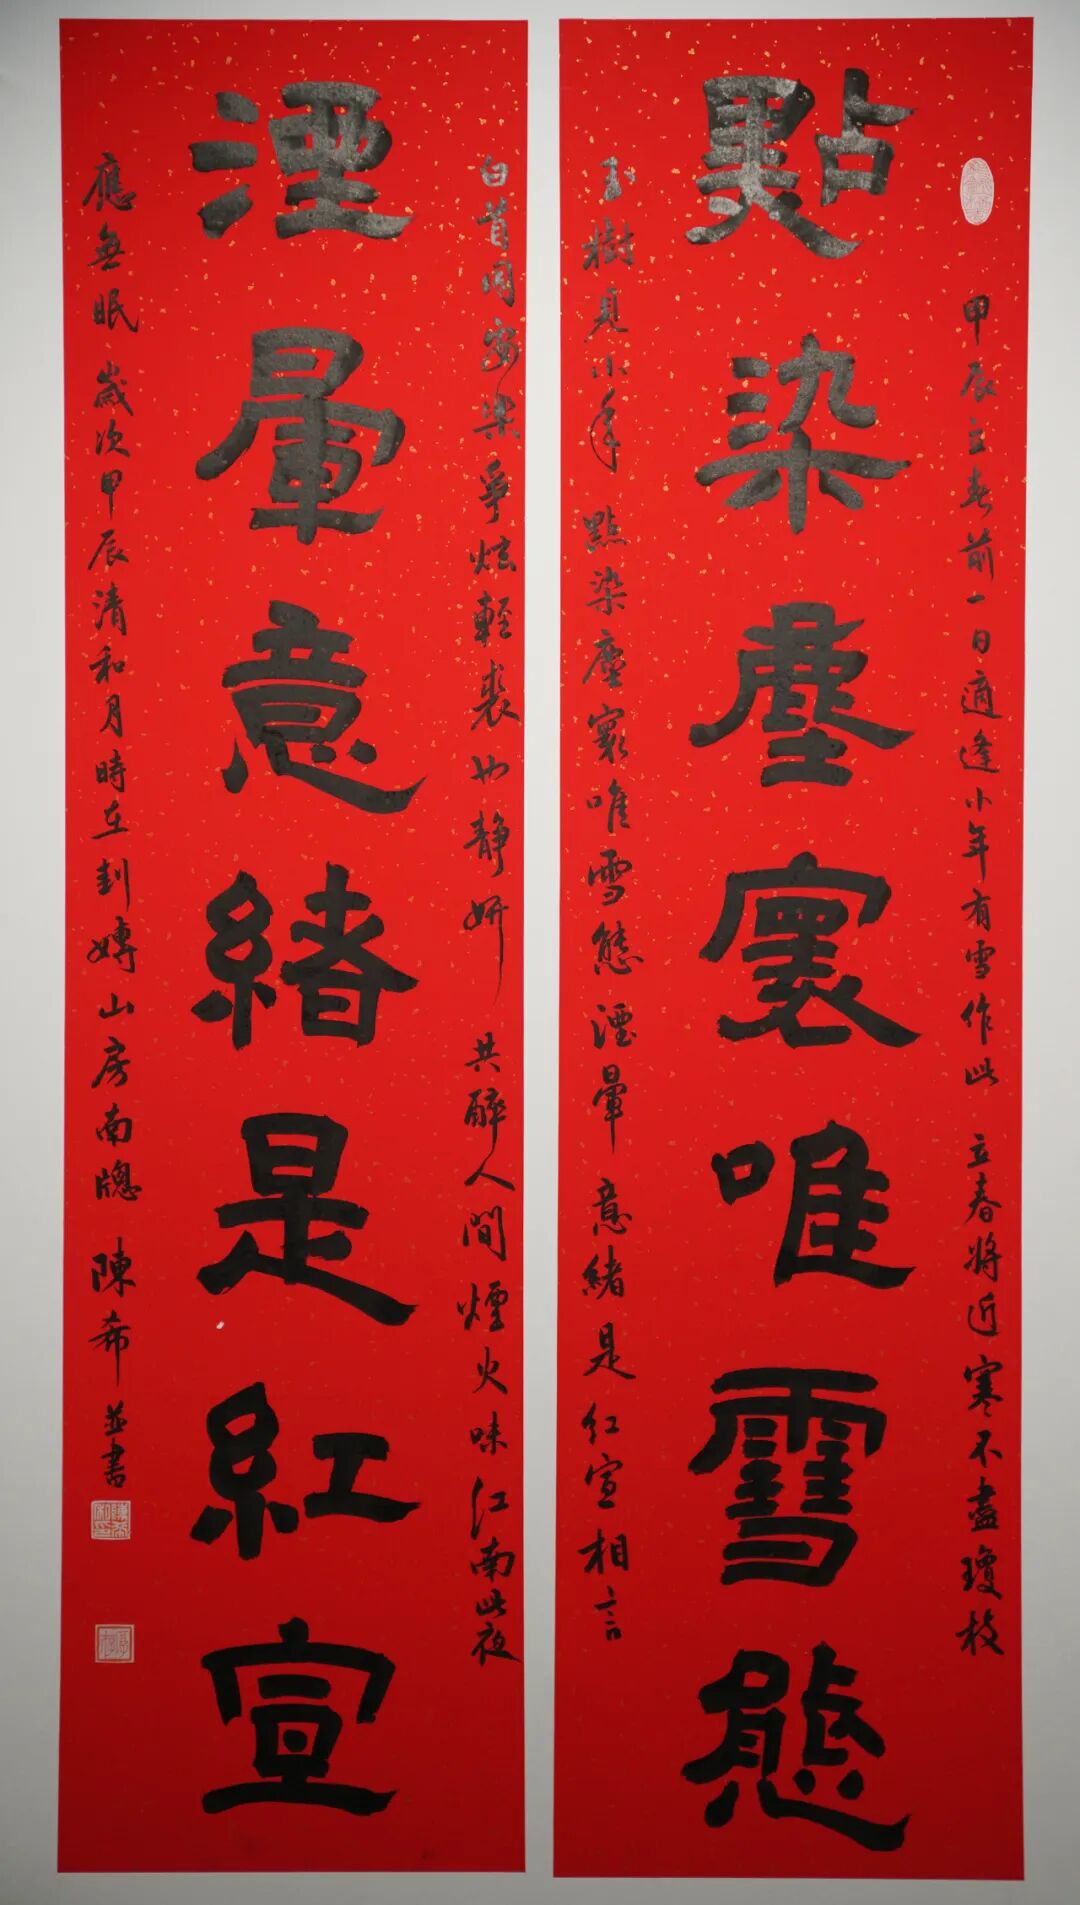 甲辰立春前一日適逢小年有雪作此 立春將近寒不盡瓊枝
點染塵寰唯雪態
玉樹見小年 點染塵寰唯雪態湮暈意緒是紅宣相言
白首同安樂爭炫輕裘也靜妍 共醉人間煙火味江南此夜
湮暈意緒是紅宣
應無眠 歲次甲辰清和月時在山房南牕 陳希並書